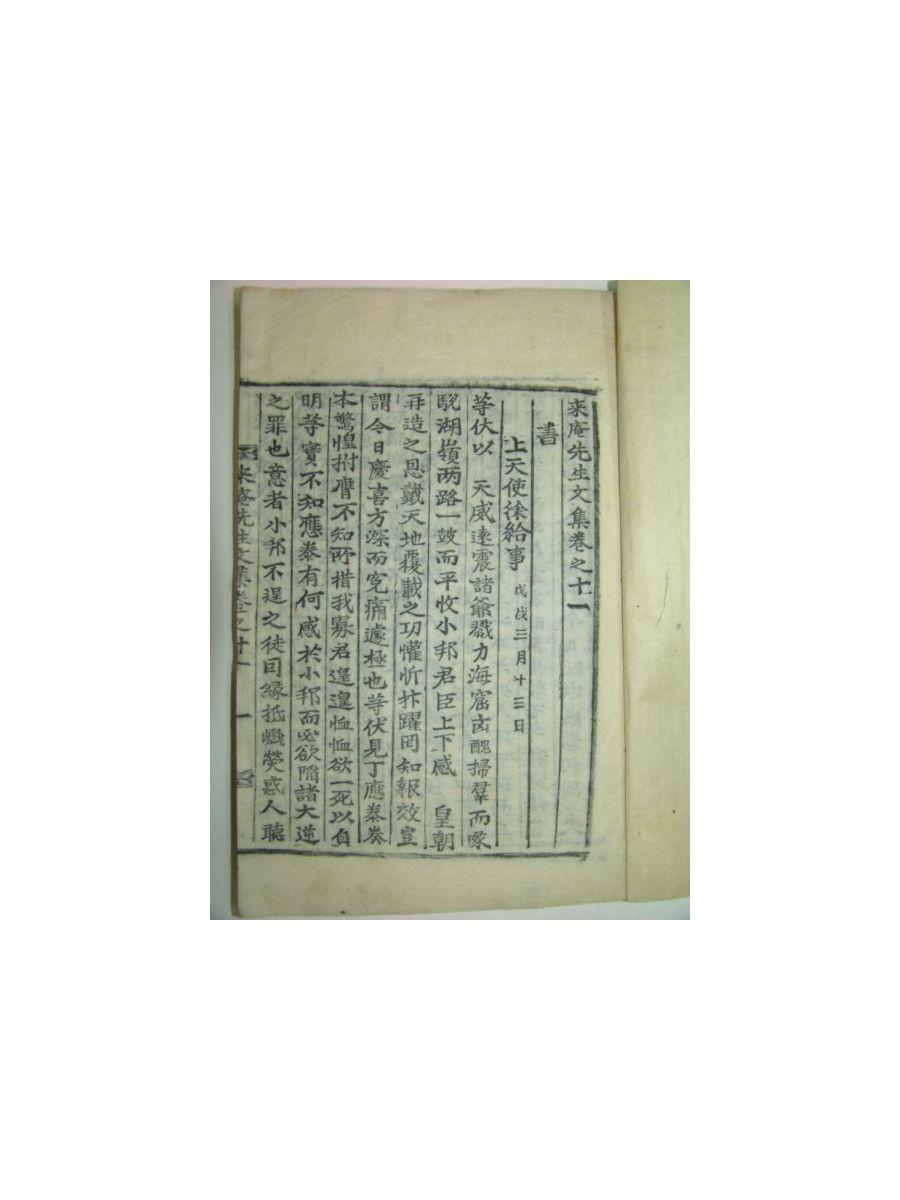 來庵先生文集卷之十一
書
上天使徐給事 戊戌三月十三日
等伏以 天威遠震諸爺戮力海窟凶醜掃羣而喙
駾湖嶺两路一鼓而平收小邦君臣上下感 皇朝
再造之恩戴天地覆載之功懽忻抃躍罔知報效豈
謂今日慶喜方深而寃痛遽極也等伏見丁應泰奏
本驚惶拊膺不知所措我寡君遑遑恤恤欲一死以自
明等實不知應泰有何感於小邦而必欲陷諸大逆
之罪也意者小邦不逞之徒因緣抵巇熒惑人聽
來庵先生文集卷之十一 一